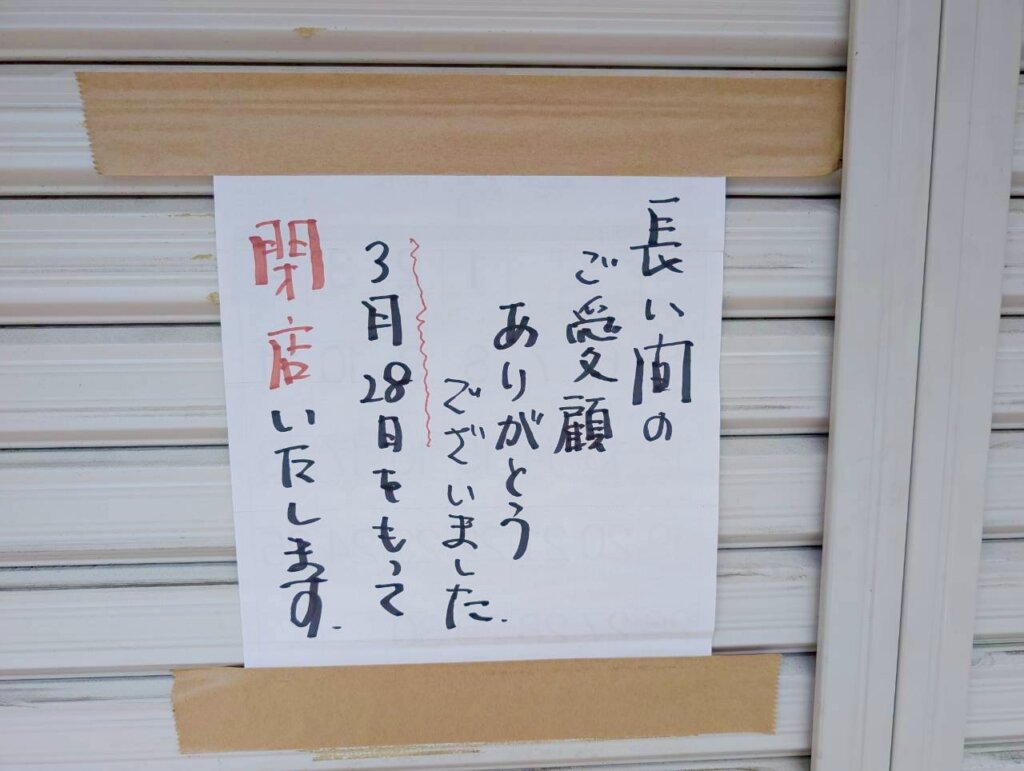 長い間の
ご愛顧
ありがとう
ございました.
3月28日をもって
閉店いたします.